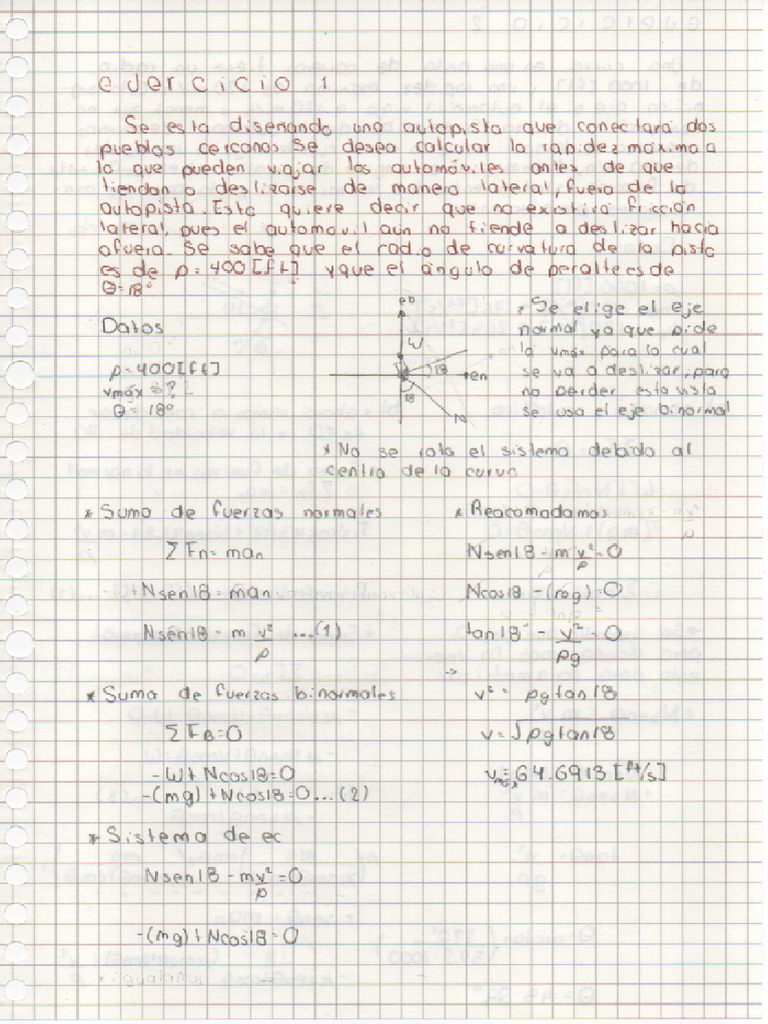 EJERCICIO 1
Se esta diseñando una autopista que conectará dos
pueblos cercanos. Se desea calcular la rapidez máxima a
la que pueden viajar los automóviles antes de que
tiendan a deslizarse de manera lateral, fuera de la
autopista. Esto quiere decir que no existirá fricción
lateral, pues el automovil aun no tiende a deslizar hacia
afuera. Se sabe que el radio de curvatura de la pista
es de ρ = 400 [ft] y que el ángulo de peralte es de
θ = 18°
Datos
ρ = 400 [ft]
vmáx = ??
θ = 18°
eb
W
18
en
18
N
* Se elige el eje
normal ya que pide
la vmáx para la cual
se va a deslizar, para
no perder esta vista
se usa el eje binormal
* No se rota el sistema debido al
centro de la curva
* Suma de fuerzas normales
ΣFn = man
+Nsen18 = man
Nsen18 = m v²/ρ ...(1)
* Suma de fuerzas binormales
ΣFB = 0
-W + Ncos18 = 0
-(mg) + Ncos18 = 0 ...(2)
* Sistema de ec
Nsen18 - m v²/ρ = 0
-(mg) + Ncos18 = 0
* Reacomodamos
Nsen18 - m v²/ρ = 0
Ncos18 - (mg) = 0
tan18° - v²/ρg = 0
v² = ρgtan18
v = √ρgtan18
vmáx = 64.6913 [ft/s]